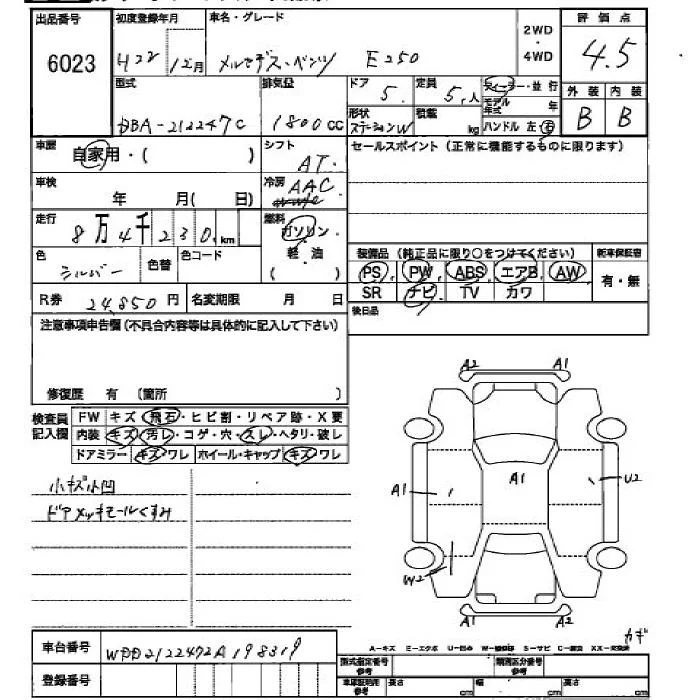 出品番号 初度登録年月 車名・グレード 2WD・4WD 評価点
6023 H22 12月 メルセデス・ベンツ E250 4.5
型式 排気量 ドア 定員 ディーラー・並行 外装 内装
DBA-212247C 1800cc 5 5人 モデル年式 年 B B
形状 ステーションW 積載 kg ハンドル 左・右
車歴 自家用・( ) シフト AT セールスポイント(正常に機能するものに限ります)
車検 年 月( 日) 冷房 AAC
走行 8万4千230km 燃料 ガソリン・軽油 ( )
色 シルバー 色替 色コード
装備品(純正品に限り○をつけてください) 新車保証書
PS PW ABS エアB AW 有・無
SR ナビ TV カワ
R券 24,850円 名変期限 月 日
後日品
注意事項申告欄(不具合内容等は具体的に記入して下さい)
修復歴 有 (箇所 )
検査員記入欄 FW キズ・飛石・ヒビ割・リペア跡・X要
内装 キズ・汚レ・コゲ・穴・スレ・ヘタリ・破レ
ドアミラー キズ・ワレ ホイール・キャップ キズ・ワレ
小キズ小凹
ドアメッキモールくすみ
A2 A1
A1 A1 U2
W2
A1 A2
カギ
A-キズ E-エクボ U-凹み W-補修跡 S-サビ C-腐食 XX-交換済
車台番号 WDD2122472A198319
登録番号
型式指定番号 参考 類別区分番号 参考
車庫証明用 参考 長さ cm 幅 cm 高さ cm